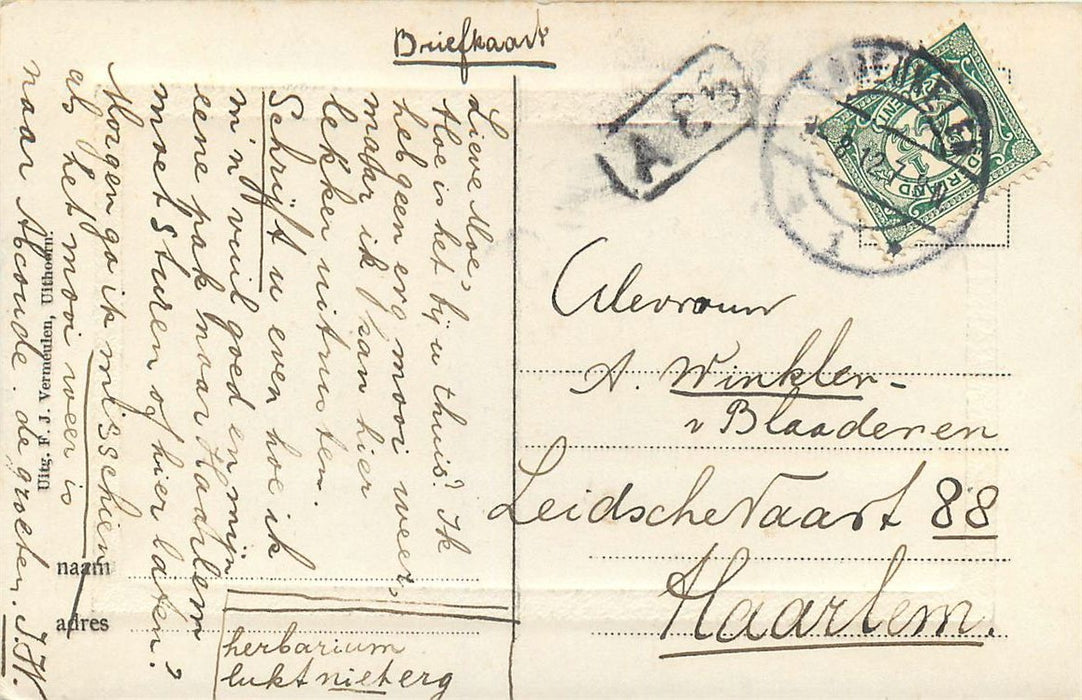 Briefkaart
Lieve Moe,
Hoe is het bij u thuis? Ik
heb geen erg mooi weer,
maar ik kan hier
lekker uitrusten.
Schrijft u even hoe ik
m'n vuil goed en mijn
eene pak naar Haarlem
moet sturen of hier laten?
Morgen ga ik misschien
als het mooi weer is
naar Abcoude. de groeten. J.W.
herbarium
lukt niet erg
Uitg. F. J. Vermeulen, Uithoorn.
naam
adres
A E 3
NEDERLAND
1
Mevrouw
A. Winkler-
v Blaaderen
Leidsche Vaart 88
Haarlem.